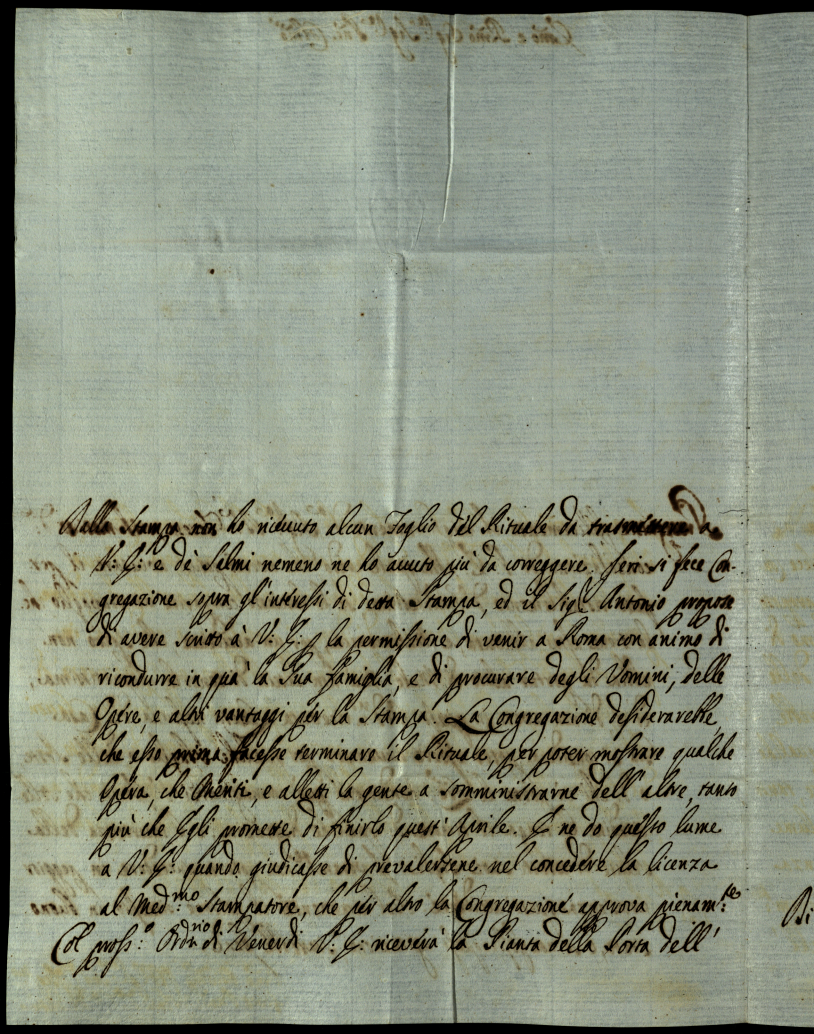 Dalla Stampa non ho ricevuto alcun Foglio del Rituale da trasmettere a
V: E: e de Salmi nemeno ne ho avuto più da correggere. Ieri si fece Con-
gregazione sopra gl'interessi di detta Stampa, ed il Sig.r Antonio propose
di avere scritto à V: E: p la permissione di venir a Roma con animo di
ricondurre in quà la Sua famiglia, e di procurare degli Uomini, delle
Opere, e altri vantaggi per la Stampa. La Congregazione desiderarebbe,
che esso prima facesse terminare il Rituale, per poter mostrare qualche
Opera, che meriti, e alletti la gente a somministrarne dell'altre, tanto
più che Egli promette di finirlo quest'Aprile. E ne do questo lume
a V: E: quando giudicasse di prevalersene nel concedere la licenza
al Med:mo Stampatore, che per altro la Congregazione approva pienam:te
Col pross:o Ord:rio di Venerdì V: E: riceverà la Pianta della Porta dell'
Bi